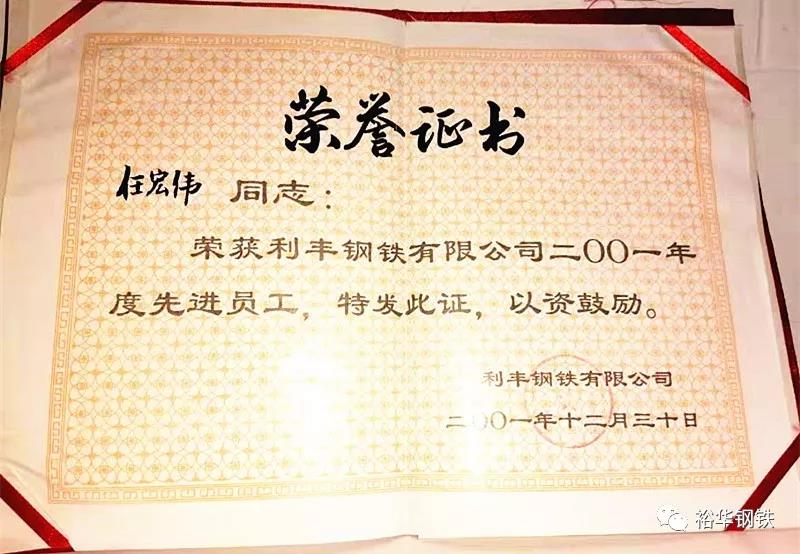 荣誉证书
任宏伟 同志：
荣获利丰钢铁有限公司二〇〇一年
度先进员工，特发此证，以资鼓励。
利丰钢铁有限公司
二〇〇一年十二月三十日
裕华钢铁